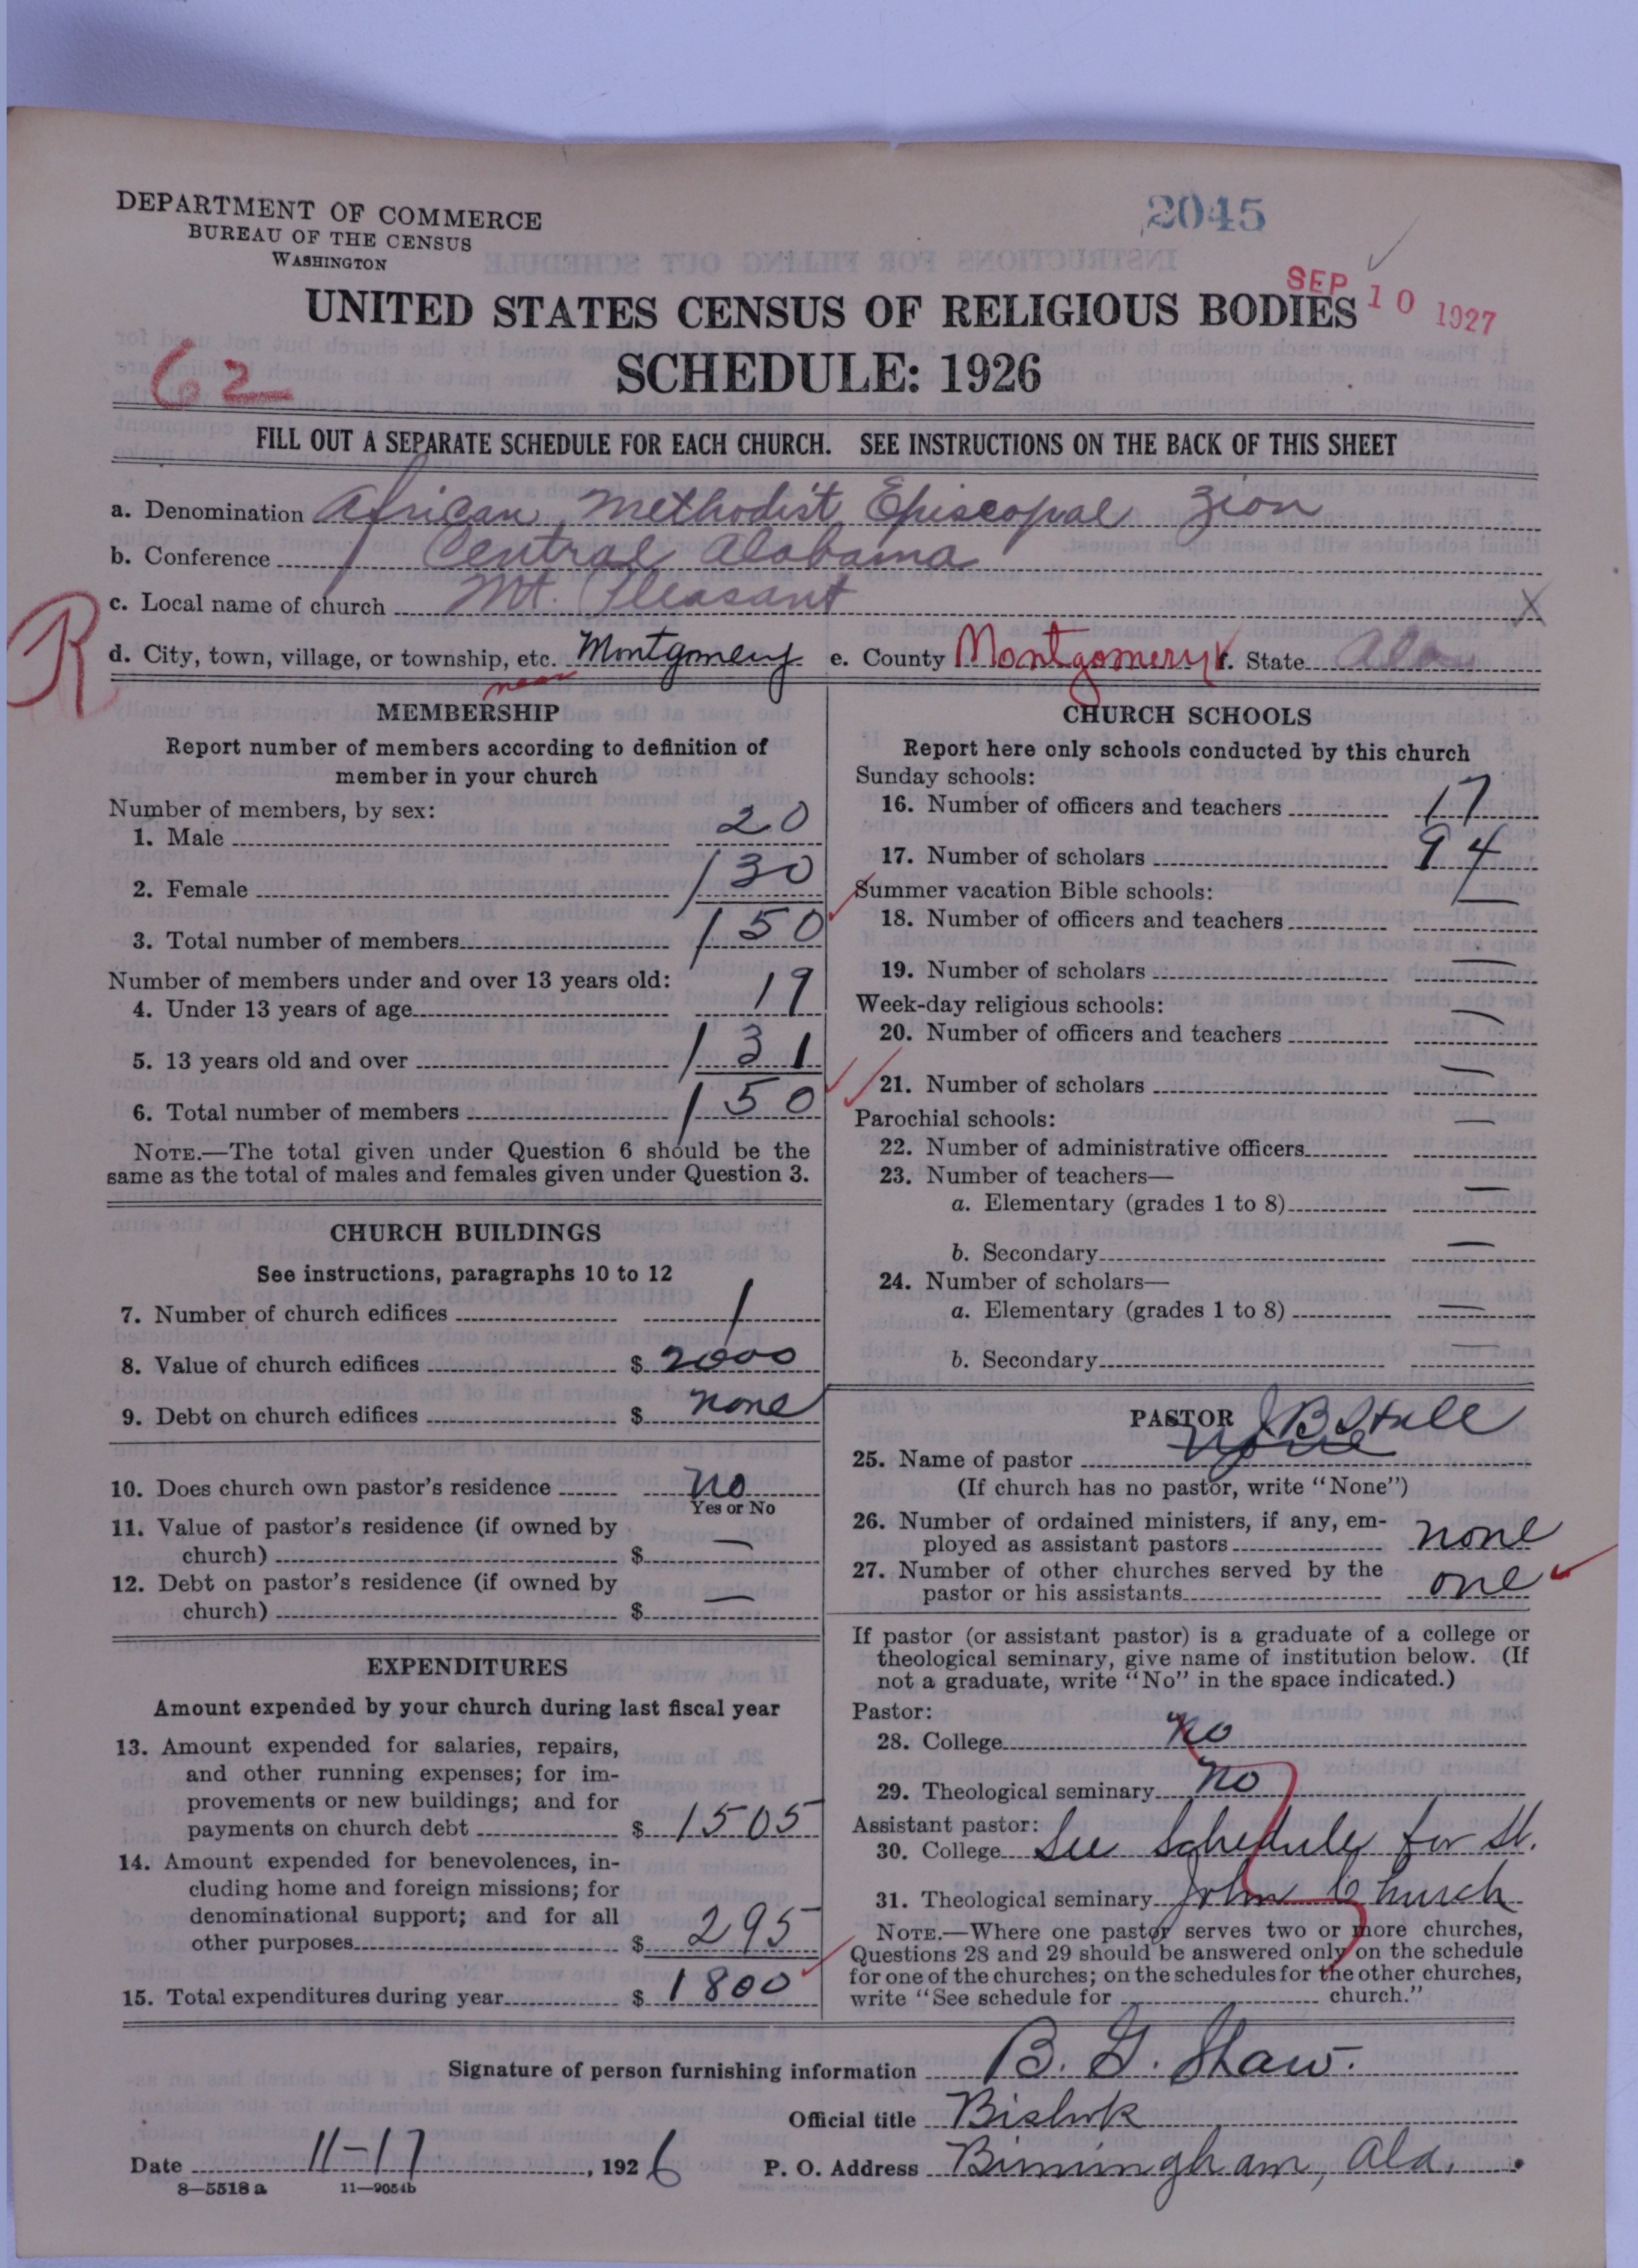 DEPARTMENT OF COMMERCE
BUREAU OF THE CENSUS
WASHINGTON
2045
SEP 10 1927
UNITED STATES CENSUS OF RELIGIOUS BODIES
SCHEDULE: 1926
62
FILL OUT A SEPARATE SCHEDULE FOR EACH CHURCH. SEE INSTRUCTIONS ON THE BACK OF THIS SHEET
a. Denomination African Methodist Episcopal Zion
b. Conference Central Alabama
c. Local name of church Mt. Pleasant
R
d. City, town, village, or township, etc. Montgomery e. County Montgomery f. State Ala
near
MEMBERSHIP
Report number of members according to definition of
member in your church
Number of members, by sex:
1. Male 20
2. Female 130
3. Total number of members 150
Number of members under and over 13 years old:
4. Under 13 years of age 19
5. 13 years old and over 131
6. Total number of members 150
NOTE.—The total given under Question 6 should be the
same as the total of males and females given under Question 3.
CHURCH BUILDINGS
See instructions, paragraphs 10 to 12
7. Number of church edifices 1
8. Value of church edifices $ 2000
9. Debt on church edifices $ none
10. Does church own pastor's residence No
Yes or No
11. Value of pastor's residence (if owned by
church) $ —
12. Debt on pastor's residence (if owned by
church) $ —
EXPENDITURES
Amount expended by your church during last fiscal year
13. Amount expended for salaries, repairs,
and other running expenses; for im-
provements or new buildings; and for
payments on church debt $ 1505
14. Amount expended for benevolences, in-
cluding home and foreign missions; for
denominational support; and for all
other purposes $ 295
15. Total expenditures during year $ 1800
CHURCH SCHOOLS
Report here only schools conducted by this church
Sunday schools:
16. Number of officers and teachers 17
17. Number of scholars 94
Summer vacation Bible schools:
18. Number of officers and teachers —
19. Number of scholars —
Week-day religious schools:
20. Number of officers and teachers —
21. Number of scholars —
Parochial schools:
22. Number of administrative officers —
23. Number of teachers—
a. Elementary (grades 1 to 8) —
b. Secondary —
24. Number of scholars—
a. Elementary (grades 1 to 8) —
b. Secondary —
PASTOR J B Hall
25. Name of pastor None
(If church has no pastor, write "None")
26. Number of ordained ministers, if any, em-
ployed as assistant pastors none
27. Number of other churches served by the
pastor or his assistants one
If pastor (or assistant pastor) is a graduate of a college or
theological seminary, give name of institution below. (If
not a graduate, write "No" in the space indicated.)
Pastor:
28. College No
29. Theological seminary No
Assistant pastor:
30. College See Schedule for St.
31. Theological seminary John Church
NOTE.—Where one pastor serves two or more churches,
Questions 28 and 29 should be answered only on the schedule
for one of the churches; on the schedules for the other churches,
write "See schedule for church."
Signature of person furnishing information B. G. Shaw.
Official title Bishop
Date 11-17, 1926 P. O. Address Birmingham, Ala.
8—5518 a 11—9054b